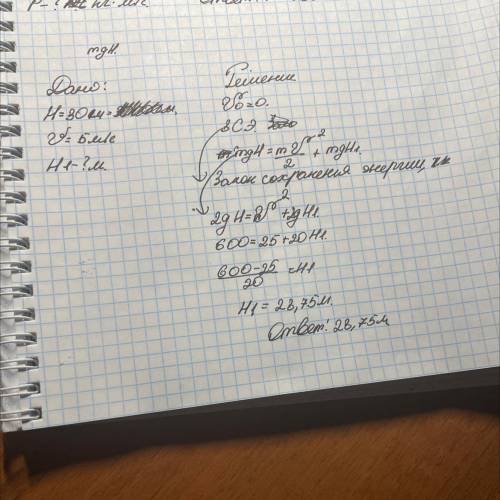 mgH.
Дано:
H=30м=
V=5м/с
H1-?м.
Решение
V0=0.
ЗСЭ.
mgH=mV²/2+mgH1.
Закон сохранения энергии
2gH=V²+2gH1.
600=25+20H1.
600-25/20=H1
H1=28,75м.
Ответ: 28,75м